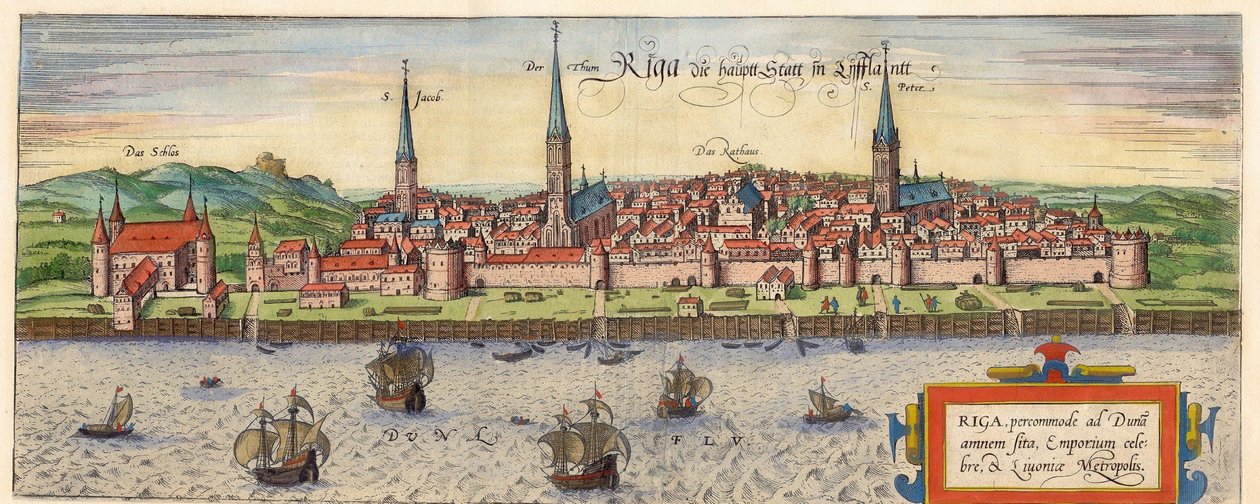 Der Thum
Riga die hauptt Statt in Lyfflantt
S. Jacob.
S. Peter
Das Schlos
Das Rathaus.
DVNA FLV.
RIGA, percommode ad Dunã
amnem sita, Emporium cele-
bre, & Liuoniæ Metropolis.